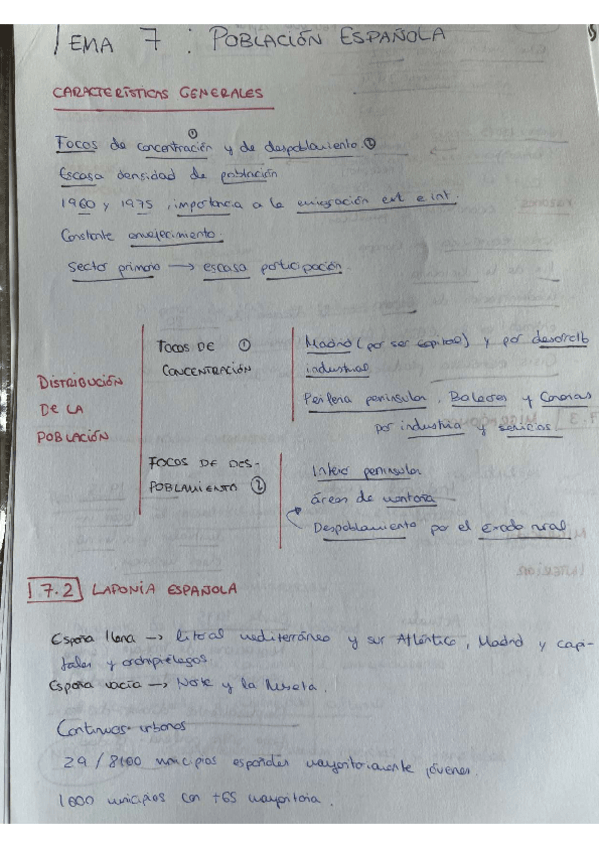 TEMA 7 : POBLACIÓN ESPAÑOLA
CARACTERÍSTICAS GENERALES
Focos de concentración ① y de despoblamiento ②
Escasa densidad de población
1960 y 1975, importancia a la emigración ext e int.
Constante envejecimiento.
Sector primario → escasa participación.
DISTRIBUCIÓN
DE LA
POBLACIÓN
FOCOS DE ①
CONCENTRACIÓN
Madrid (por ser capital) y por desarrollo
industrial
Periferia peninsular, Baleares y Canarias
por industria y servicios
FOCOS DE DES-
POBLAMIENTO ②
Interior peninsular
áreas de montaña
Despoblamiento por el éxodo rural
7.2 LAPONIA ESPAÑOLA
España llena → litoral mediterráneo y sur Atlántico, Madrid y capi-
tales y archipiélagos.
España vacía → Norte y la Meseta.
Continuos urbanos
29/8100 municipios españoles mayoritariamente jóvenes.
1000 municipios con +65 mayoritaria.
7.3